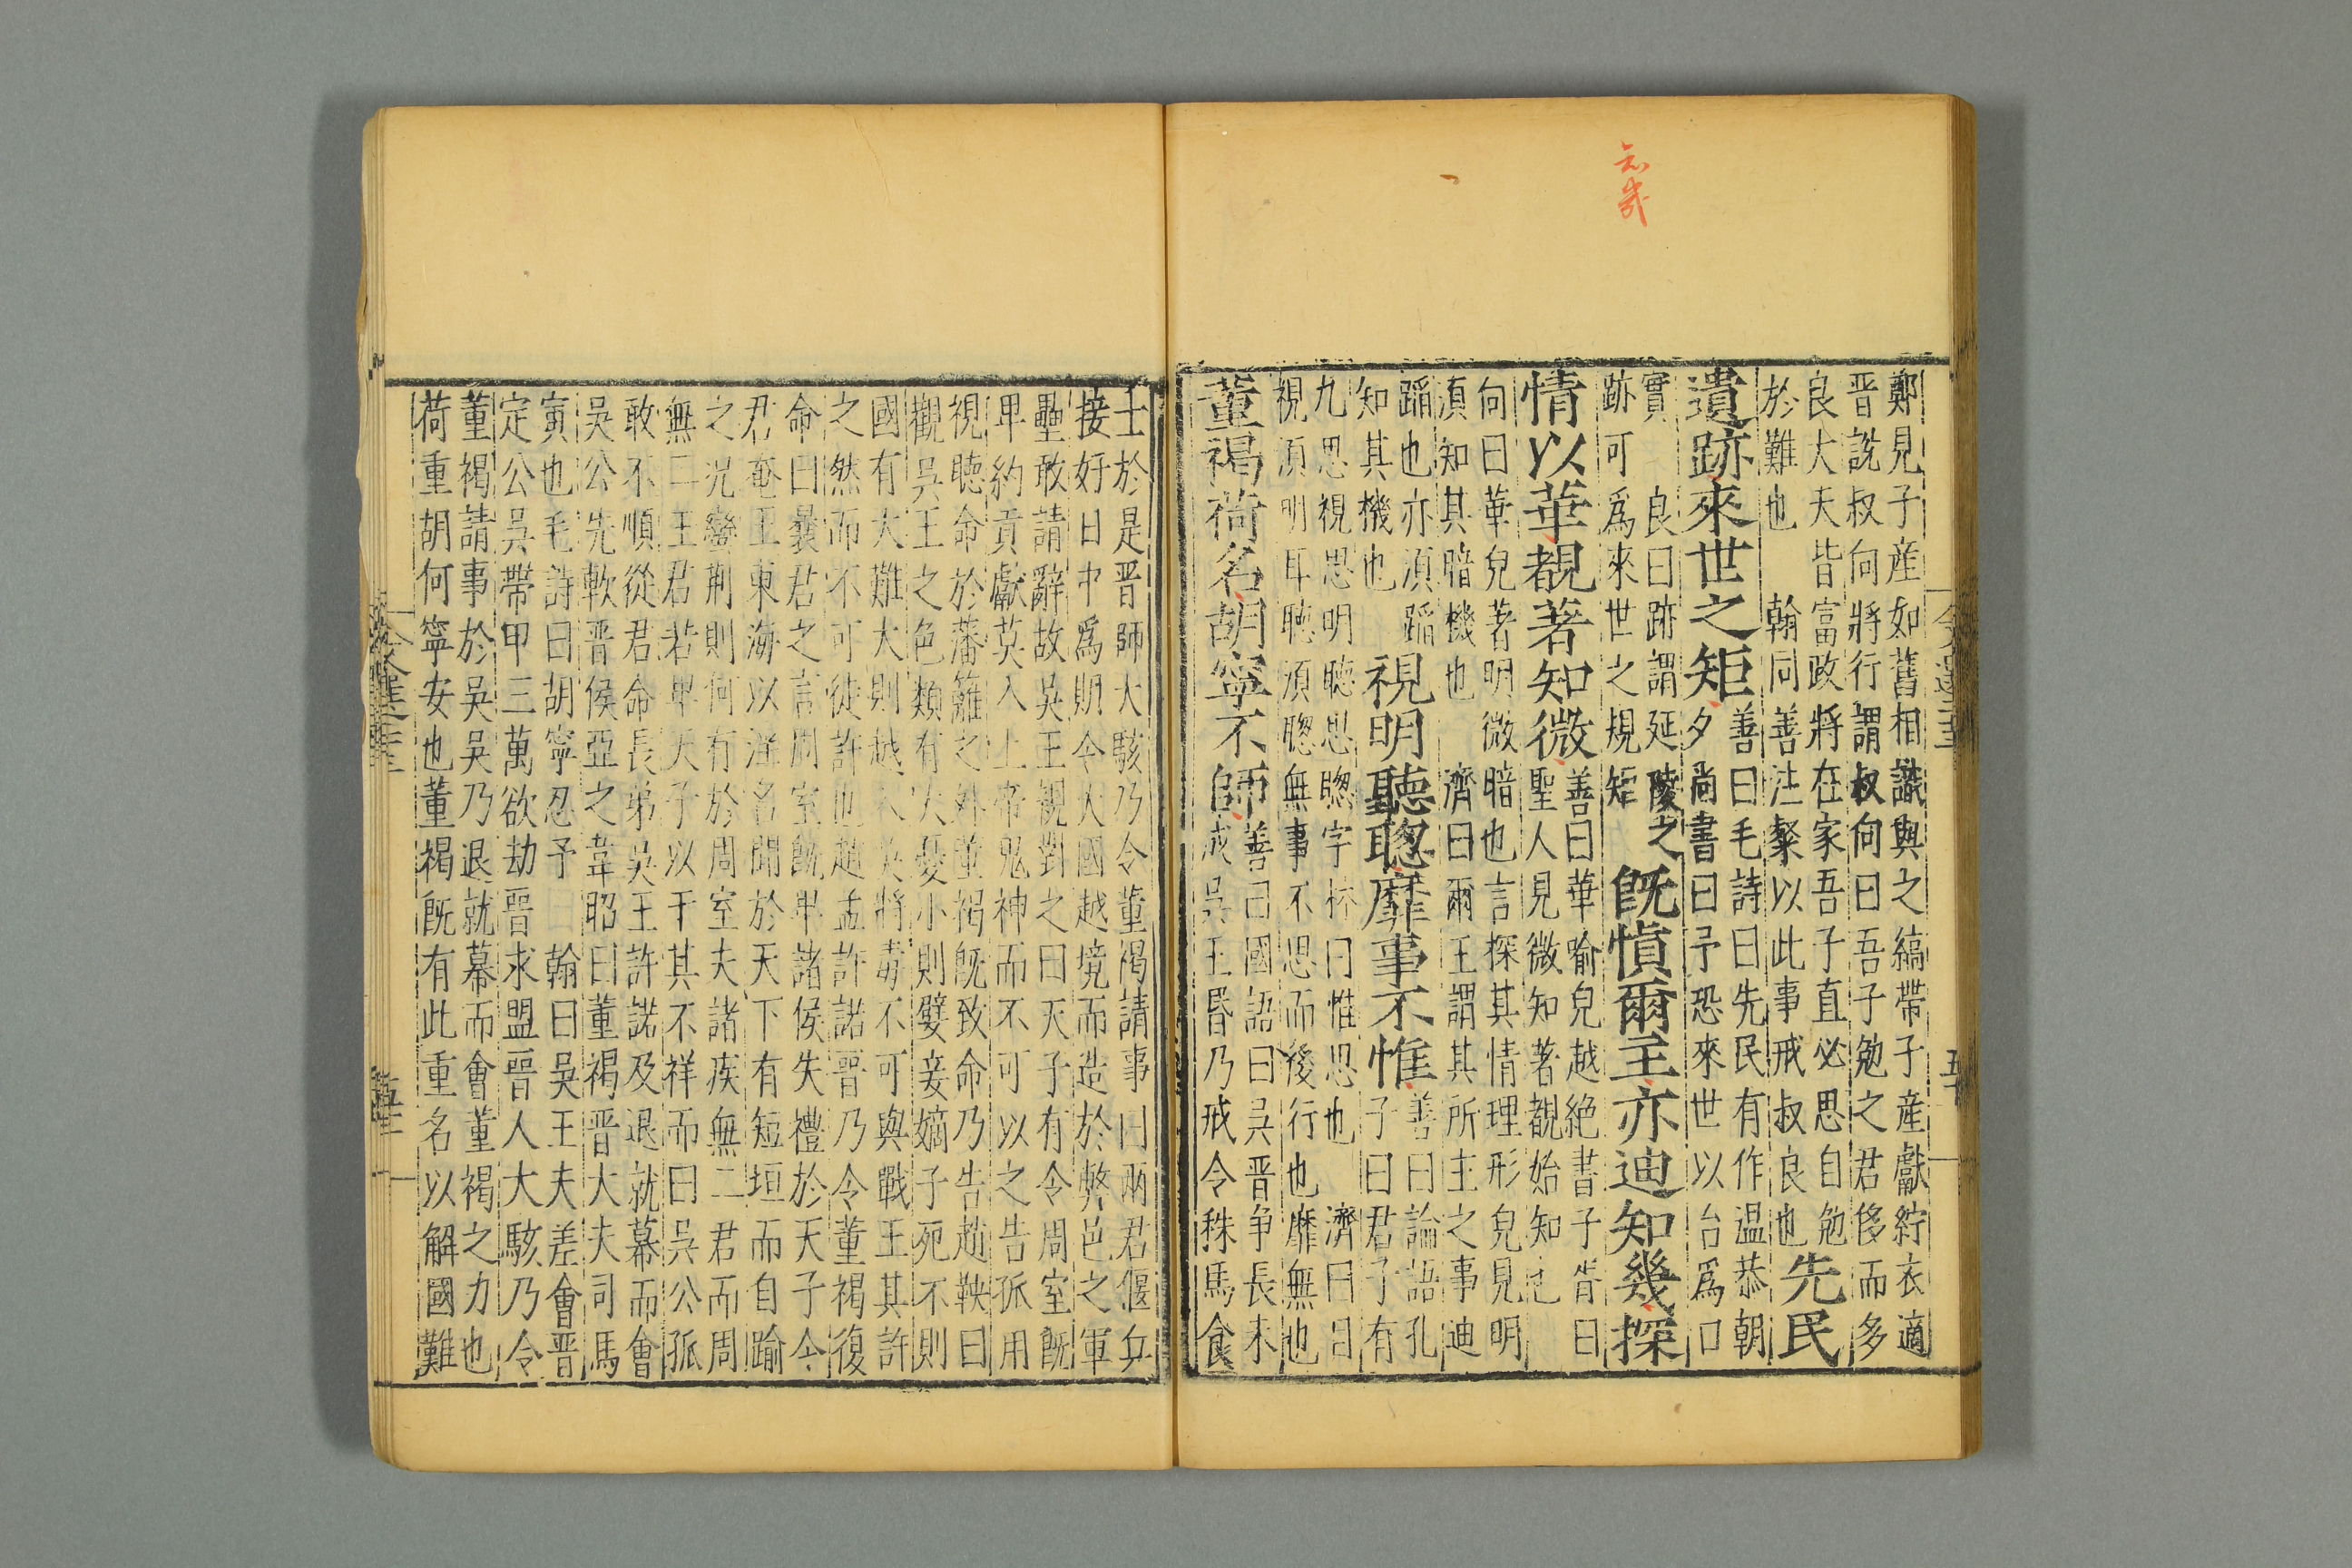 鄭見子産如舊相識與之縞帶子産獻紵衣適
晉説叔向將行謂叔向曰吾子勉之君侈而多
良大夫皆富政將在家吾子直必思自勉
於難也 翰同善注粲以此事戒叔良也
先民
遺跡來世之矩
善曰毛詩曰先民有作温恭朝
夕尚書曰予恐來世以台爲口
實 良曰跡謂延陵之
跡可爲來世之規矩
旣慎爾主亦迪知幾探
情以華覩著知微
善曰華喻皃越絶書子胥曰
聖人見微知著覩始知已
向曰華皃著明微暗也言探其情理形皃見明
湏知其暗機也 濟曰爾王謂其所主之事迪
蹈也亦湏蹈
知其機也
視明聽聦靡事不惟
善曰論語孔
子曰君子有
九思視思明聽思聦字林曰惟思也 濟曰目
視湏明耳聽湏聦無事不思而後行也靡無也
董褐荷名胡寧不師
善曰國語曰吳晋爭長未
成吳王昬乃戒令秣馬食
士於是晋師大駭乃令董褐請事曰兩君偃兵
接好日中爲期今大國越境而造於弊邑之軍
壘敢請辭故吳王親對之曰天子有令周室旣
卑約貢獻莫入上帝鬼神而不可以之告孤用
視聽命於藩籬之外董褐旣致命乃告趙鞅曰
觀吳王之色類有大憂小則嬖妾嫡子死不則
國有大難大則越入吳將毒不可與戰王其許
之然而不可徒許也趙孟許諾晋乃令董褐復
命曰曩君之言周室旣卑諸侯失禮於天子今
君奄王東海以淫名聞於天下有短垣而自踰
之况蠻荆則何有於周室夫諸侯無二君而周
無二王君若卑天子以干其不祥而曰吳公孤
敢不順從君命長弟吳王許諾及退就幕而會
吳公先軟晋侯亞之韋昭曰董褐晋大夫司馬
寅也毛詩曰胡寧忍予 翰曰吳王夫差會晋
定公吳帶甲三萬欲劫晋求盟晋人大駭乃令
董褐請事於吳吳乃退就幕而會董褐之力也
荷重胡何寧安也董褐旣有此重名以解國難